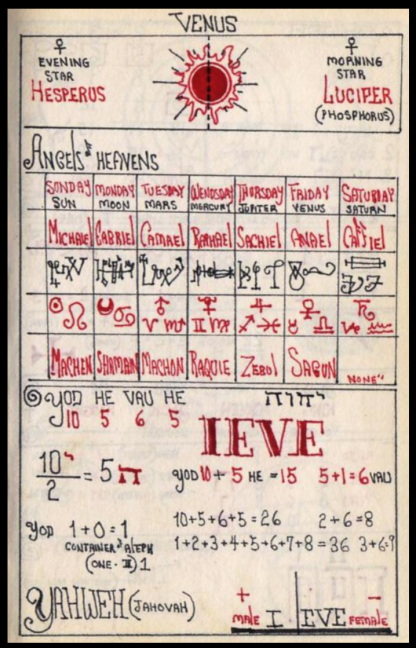 VENUS
♀
EVENING
STAR
HESPERUS
♀
MORNING
STAR
LUCIPER
(PHOSPHORUS)
ANGELS & HEAVENS
SUNDAY MONDAY TUESDAY WENDSDAY THURSDAY FRIDAY SATURDAY
SUN MOON MARS MERCURY JUPITER VENUS SATURN
MICHAEL GABRIEL CAMAEL RAPHAEL SACHIEL ANAEL CASSIEL
☉♌ ☽♋ ♂♈♏ ☿♊♍ ♃♐♓ ♀♉♎ ♄♑♒
MACHEN SHAMAIN MACHON RAQUIE ZEBOL SAGUN NONE"
YOD HE VAU HE
10 5 6 5
יהוה
IEVE
10 י
2 = 5 ה
YOD 10 + 5 HE = 15 5+1=6 VAU
YOD 1+0=1
CONTAINER & ALEPH
(ONE-א) 1
10+5+6+5=26 2+6=8
1+2+3+4+5+6+7+8=36 3+6=9
YAHWEH (JAHOVAH)
+ −
MALE I EVE FEMALE